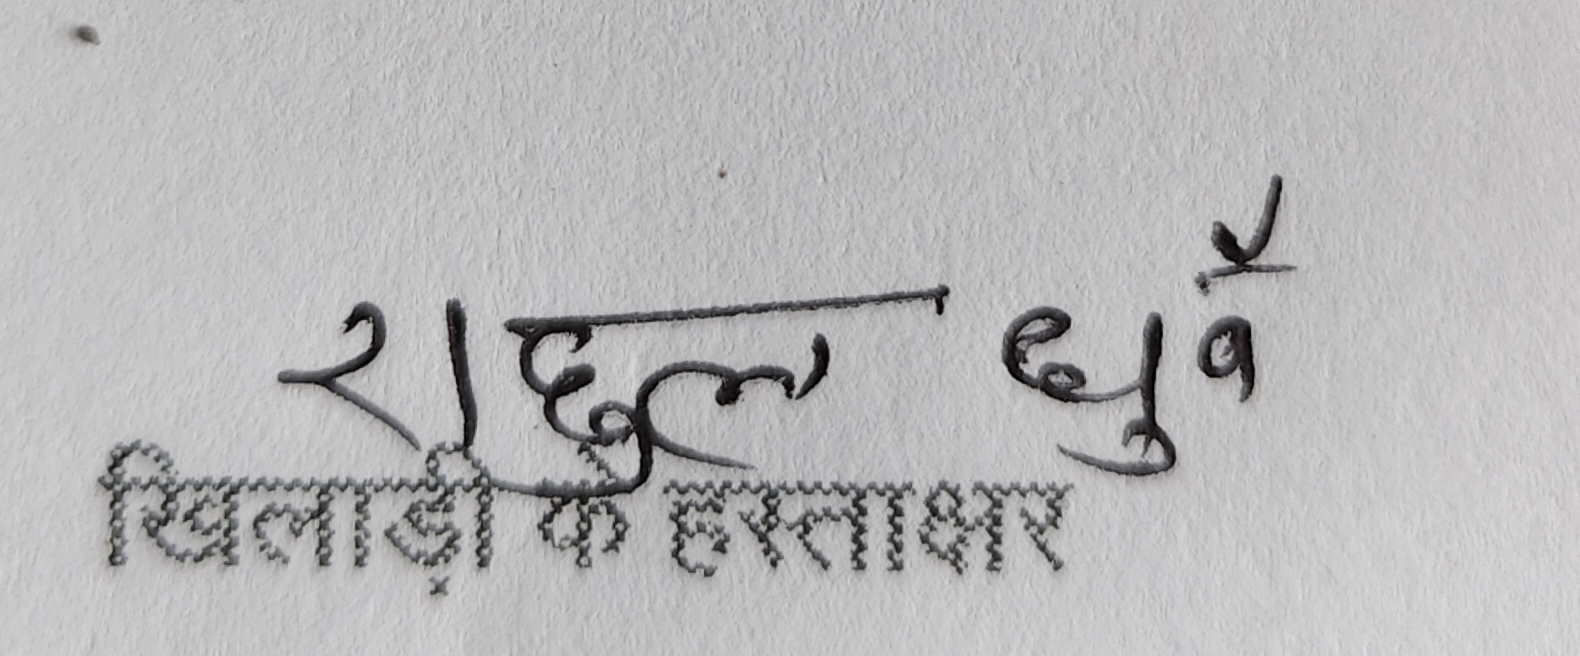 राहुल धुर्वे
खिलाड़ी के हस्ताक्षर